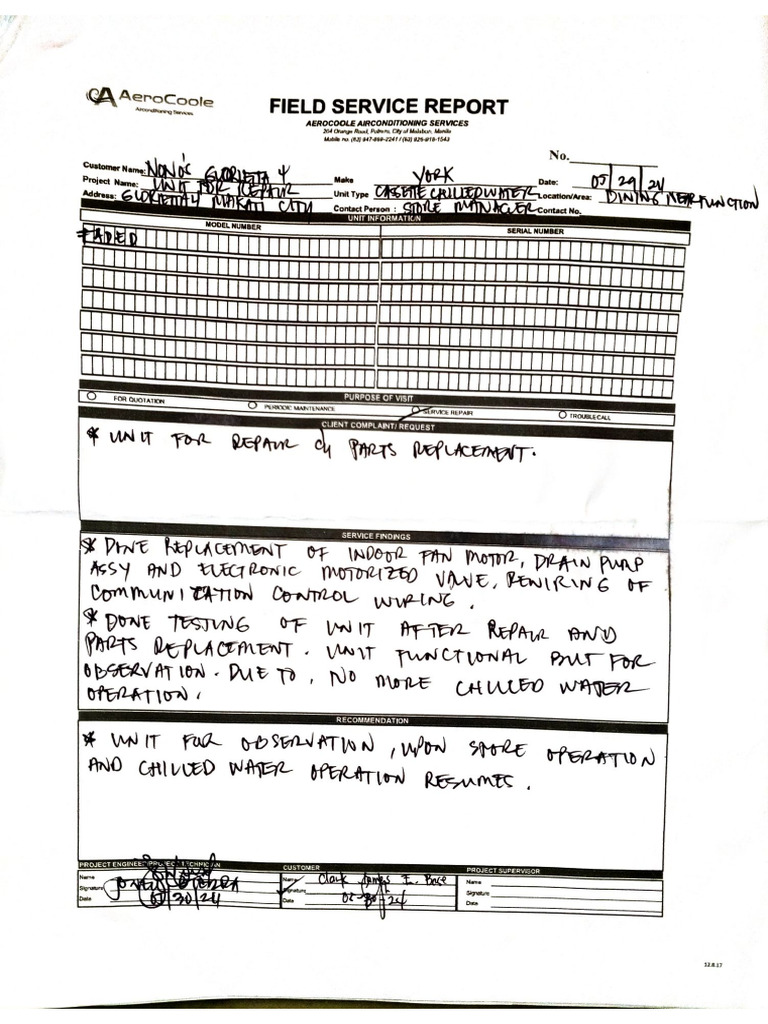 AeroCoole
Airconditioning Services
FIELD SERVICE REPORT
AEROCOOLE AIRCONDITIONING SERVICES
204 Orange Road, Potrero, City of Malabon, Manila
Mobile no. (63) 947-899-2241 / (63) 926-918-1543
No.
Customer Name: NONO'S GLORIETTA 4 Make YORK Date: 05/29/24
Project Name: UNIT FOR REPAIR Unit Type CASETTE CHILLED WATER Location/Area: DINING NEAR FUNCTION
Address: GLORIETTA 4 MAKATI CITY Contact Person : STORE MANAGER Contact No.
UNIT INFORMATION
MODEL NUMBER SERIAL NUMBER
FADED
PURPOSE OF VISIT
FOR QUOTATION PERIODIC MAINTENANCE SERVICE REPAIR TROUBLE CALL
CLIENT COMPLAINT/ REQUEST
* UNIT FOR REPAIR PARTS REPLACEMENT.
SERVICE FINDINGS
* DONE REPLACEMENT OF INDOOR FAN MOTOR, DRAIN PUMP
ASSY AND ELECTRONIC MOTORIZED VALVE, REWIRING OF
COMMUNICATION CONTROL WIRING.
* DONE TESTING OF UNIT AFTER REPAIR AND
PARTS REPLACEMENT. UNIT FUNCTIONAL BUT FOR
OBSERVATION. DUE TO, NO MORE CHILLED WATER
OPERATION.
RECOMMENDATION
* UNIT FOR OBSERVATION, UPON STORE OPERATION
AND CHILLED WATER OPERATION RESUMES.
PROJECT ENGINEER/PROJECT TECHNICIAN CUSTOMER PROJECT SUPERVISOR
Name Name Clark James Name
Signature Signature Signature
Date 05/30/24 Date Date
12.8.17